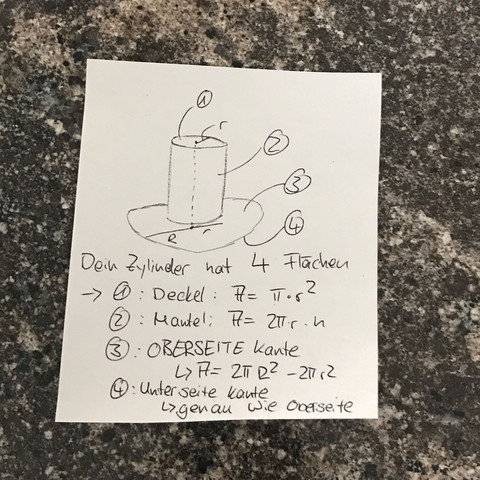 1
r
2
3
4
R r
Dein Zylinder hat 4 Flächen
→ ①: Deckel: A = π·r²
②: Mantel: A = 2πr·h
③: OBERSEITE Kante
↳ A = 2πR² - 2πr²
④: Unterseite Kante
↳ genau wie Oberseite